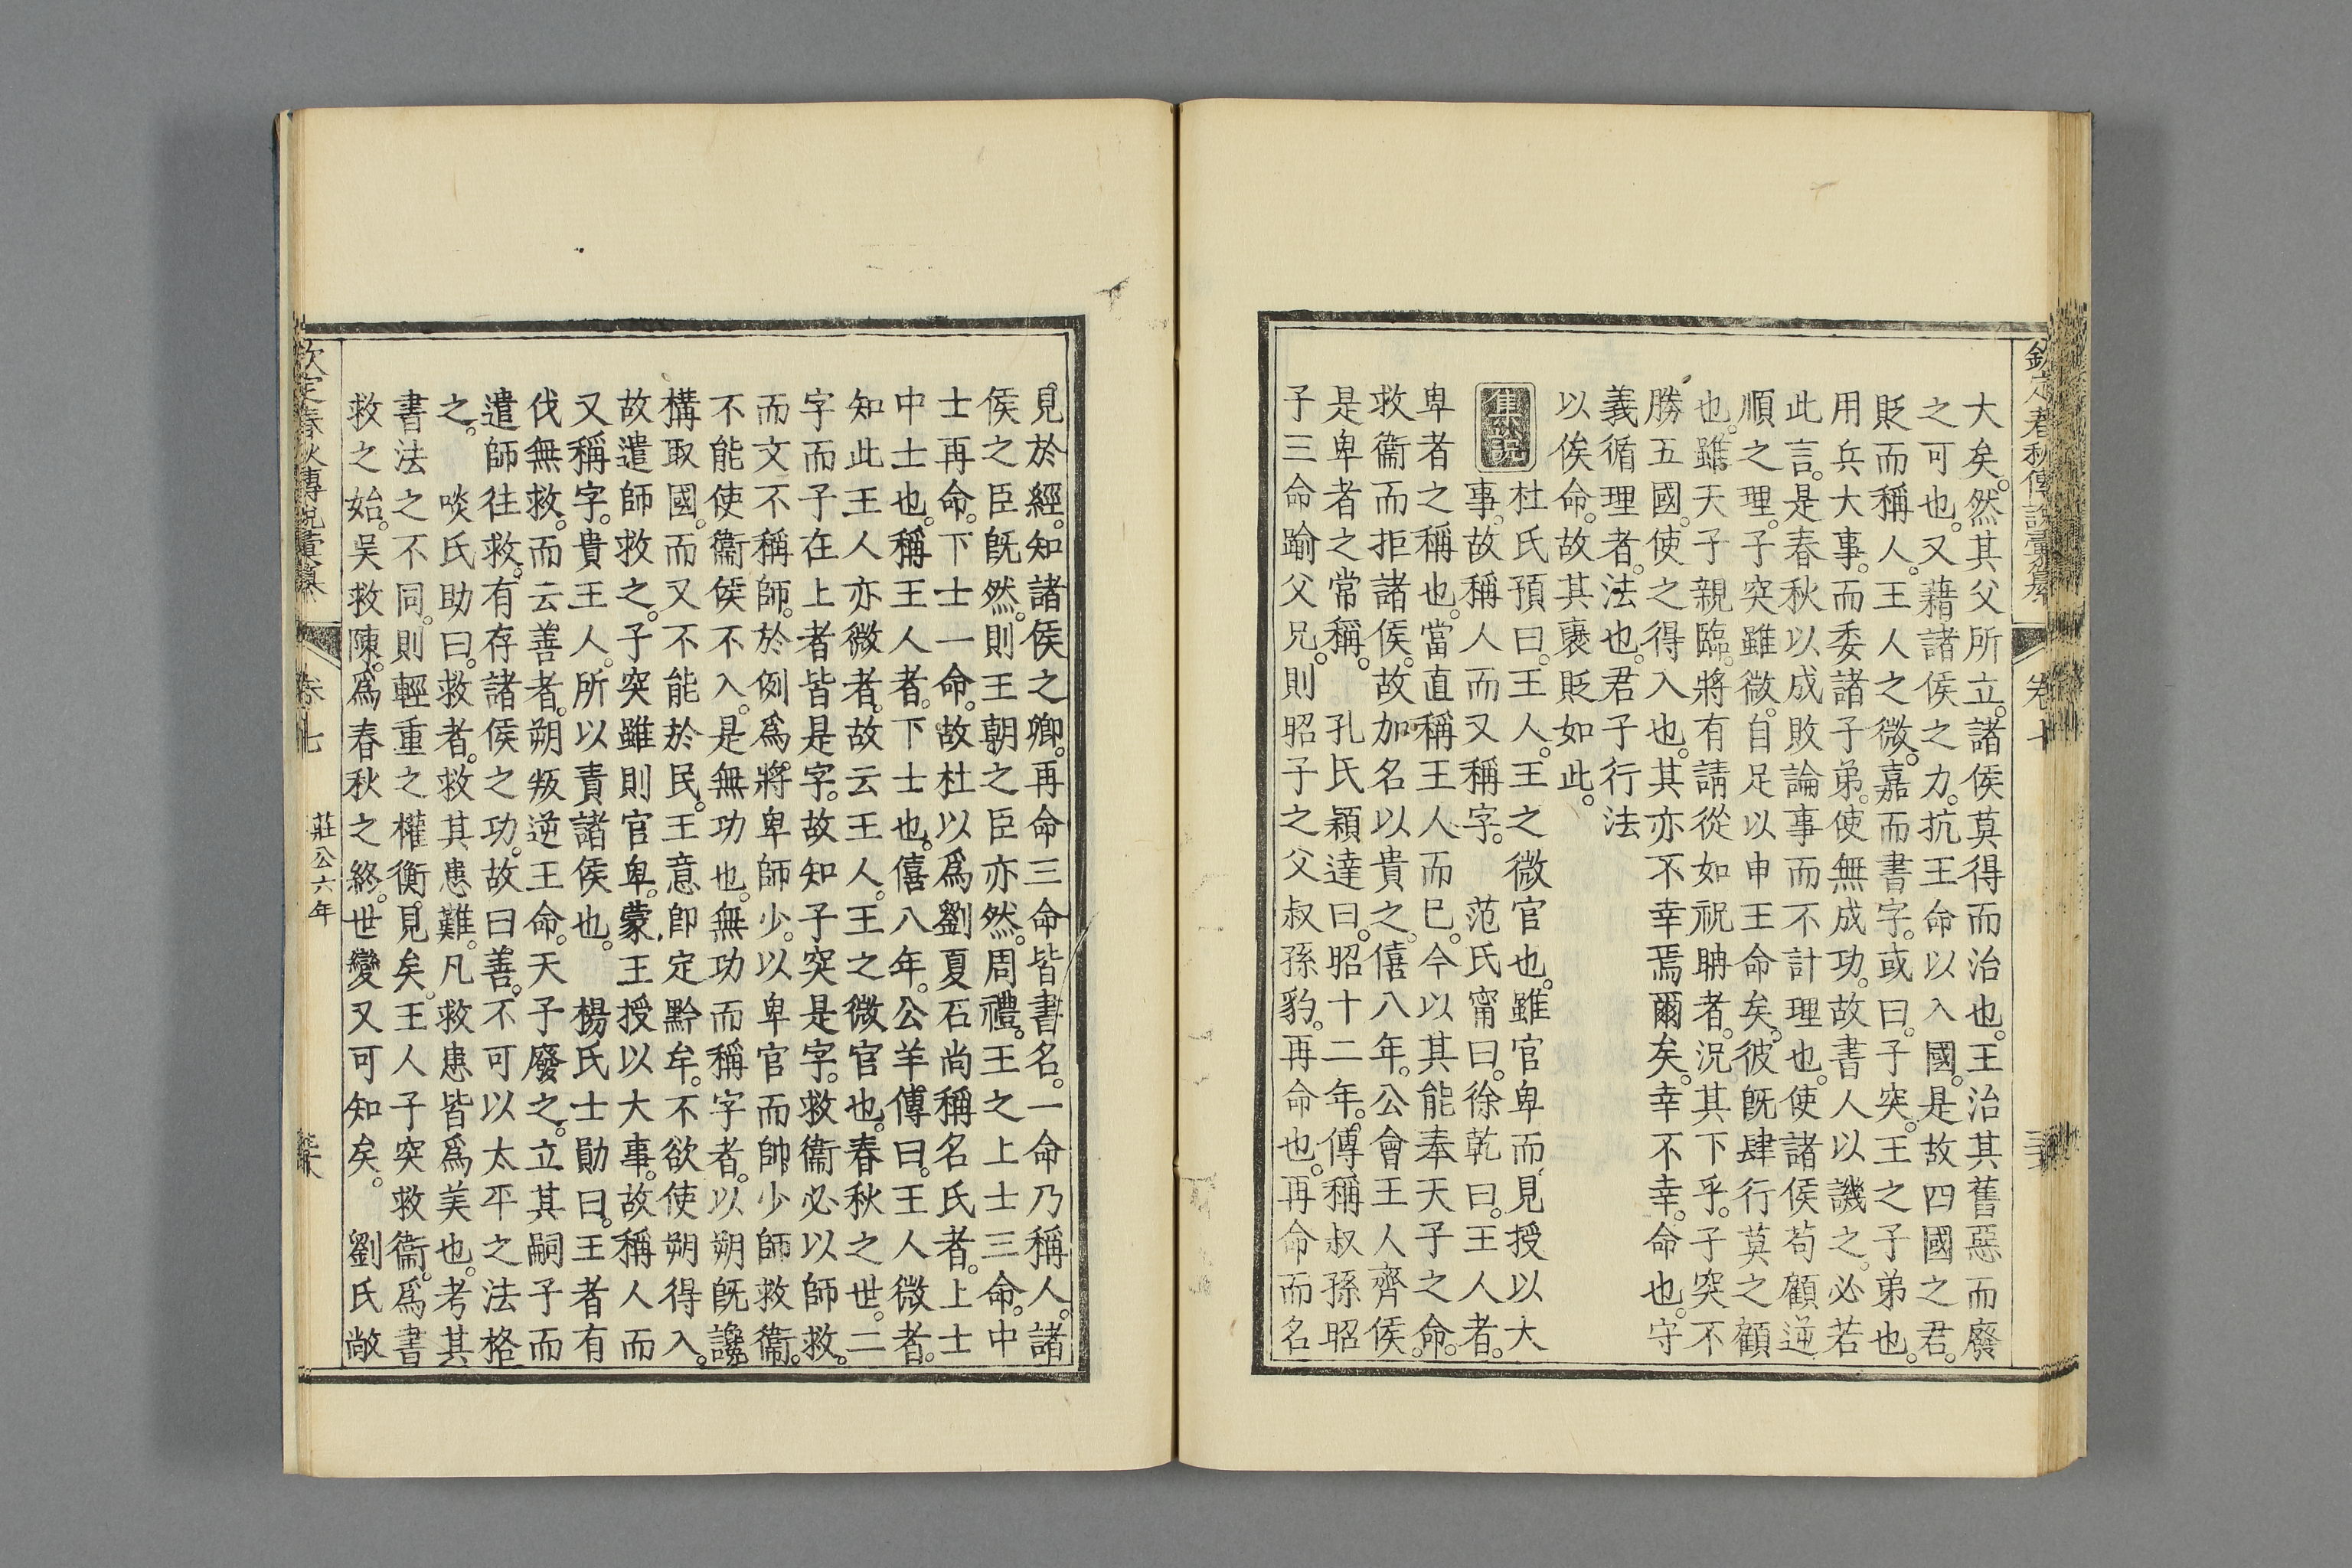 欽定春秋傳說彙纂 卷七
大矣然其父所立諸侯莫得而治也王治其舊惡而廢
之可也又藉諸侯之力抗王命以入國是故四國之君
貶而稱人王人之微嘉而書字或曰子突王之子弟也
用兵大事而委諸子弟使無成功故書人以譏之必若
此言是春秋以成敗論事而不計理也使諸侯苟顧逆
順之理子突雖微自足以申王命矣彼旣肆行莫之顧
也雖天子親臨將有請從如祝聃者況其下乎子突不
勝五國使之得入也其亦不幸焉爾矣幸不幸命也守
義循理者法也君子行法
以俟命故其褒貶如此
集說 杜氏預曰王人王之微官也雖官卑而見授以大
事故稱人而又稱字 范氏甯曰徐乾曰王人者
卑者之稱也當直稱王人而已今以其能奉天子之命
救衞而拒諸侯故加名以貴之僖八年公會王人齊侯
是卑者之常稱 孔氏穎達曰昭十二年傳稱叔孫昭
子三命踰父兄則昭子之父叔孫豹再命也再命而名
見於經知諸侯之卿再命三命皆書名一命乃稱人諸
侯之臣旣然則王朝之臣亦然周禮王之上士三命中
士再命下士一命故杜以爲劉夏石尚稱名氏者上士
中士也稱王人者下士也僖八年公羊傳曰王人微者
知此王人亦微者故云王人王之微官也春秋之世二
字而子在上者皆是字故知子突是字救衞必以師救
而文不稱師於例爲將卑師少以卑官而帥少師救衞
不能使衞侯不入是無功也無功而稱字者以朔旣讒
構取國而又不能於民王意卽定黔牟不欲使朔得入
故遣師救之子突雖則官卑蒙王授以大事故稱人而
又稱字貴王人所以責諸侯也 楊氏士勛曰王者有
伐無救而云善者朔叛逆王命天子廢之立其嗣子而
遣師往救有存諸侯之功故曰善不可以太平之法格
之 啖氏助曰救者救其患難凡救患皆爲美也考其
書法之不同則輕重之權衡見矣王人子突救衞爲書
救之始吳救陳爲春秋之終世變又可知矣 劉氏敞
欽定春秋傳說彙纂 卷七 莊公六年